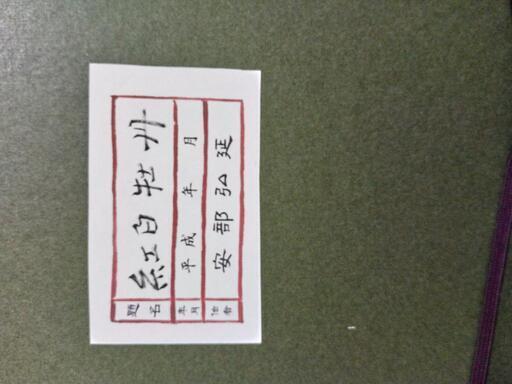 題名 紅白牡丹
年月 平成 年 月
作者 安部弘延